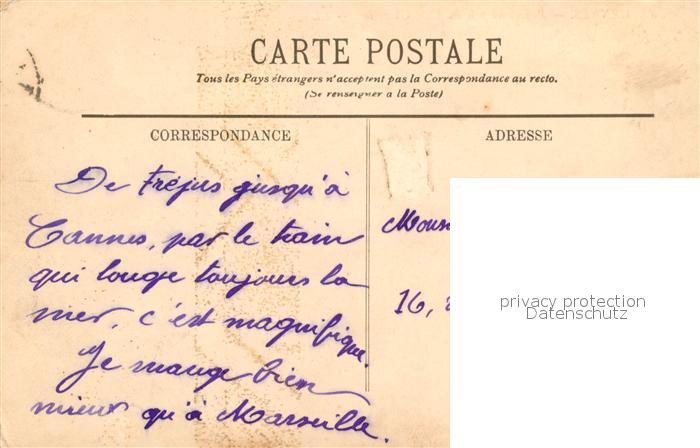 CARTE POSTALE
Tous les Pays étrangers n'acceptent pas la Correspondance au recto.
(Se renseigner a la Poste)
CORRESPONDANCE
De Fréjus jusqu'à
Cannes, par le train
qui longe toujours la
mer, c'est magnifique.
Je mange bien
mieux qu'à Marseille.
ADRESSE
16,
privacy protection
Datenschutz